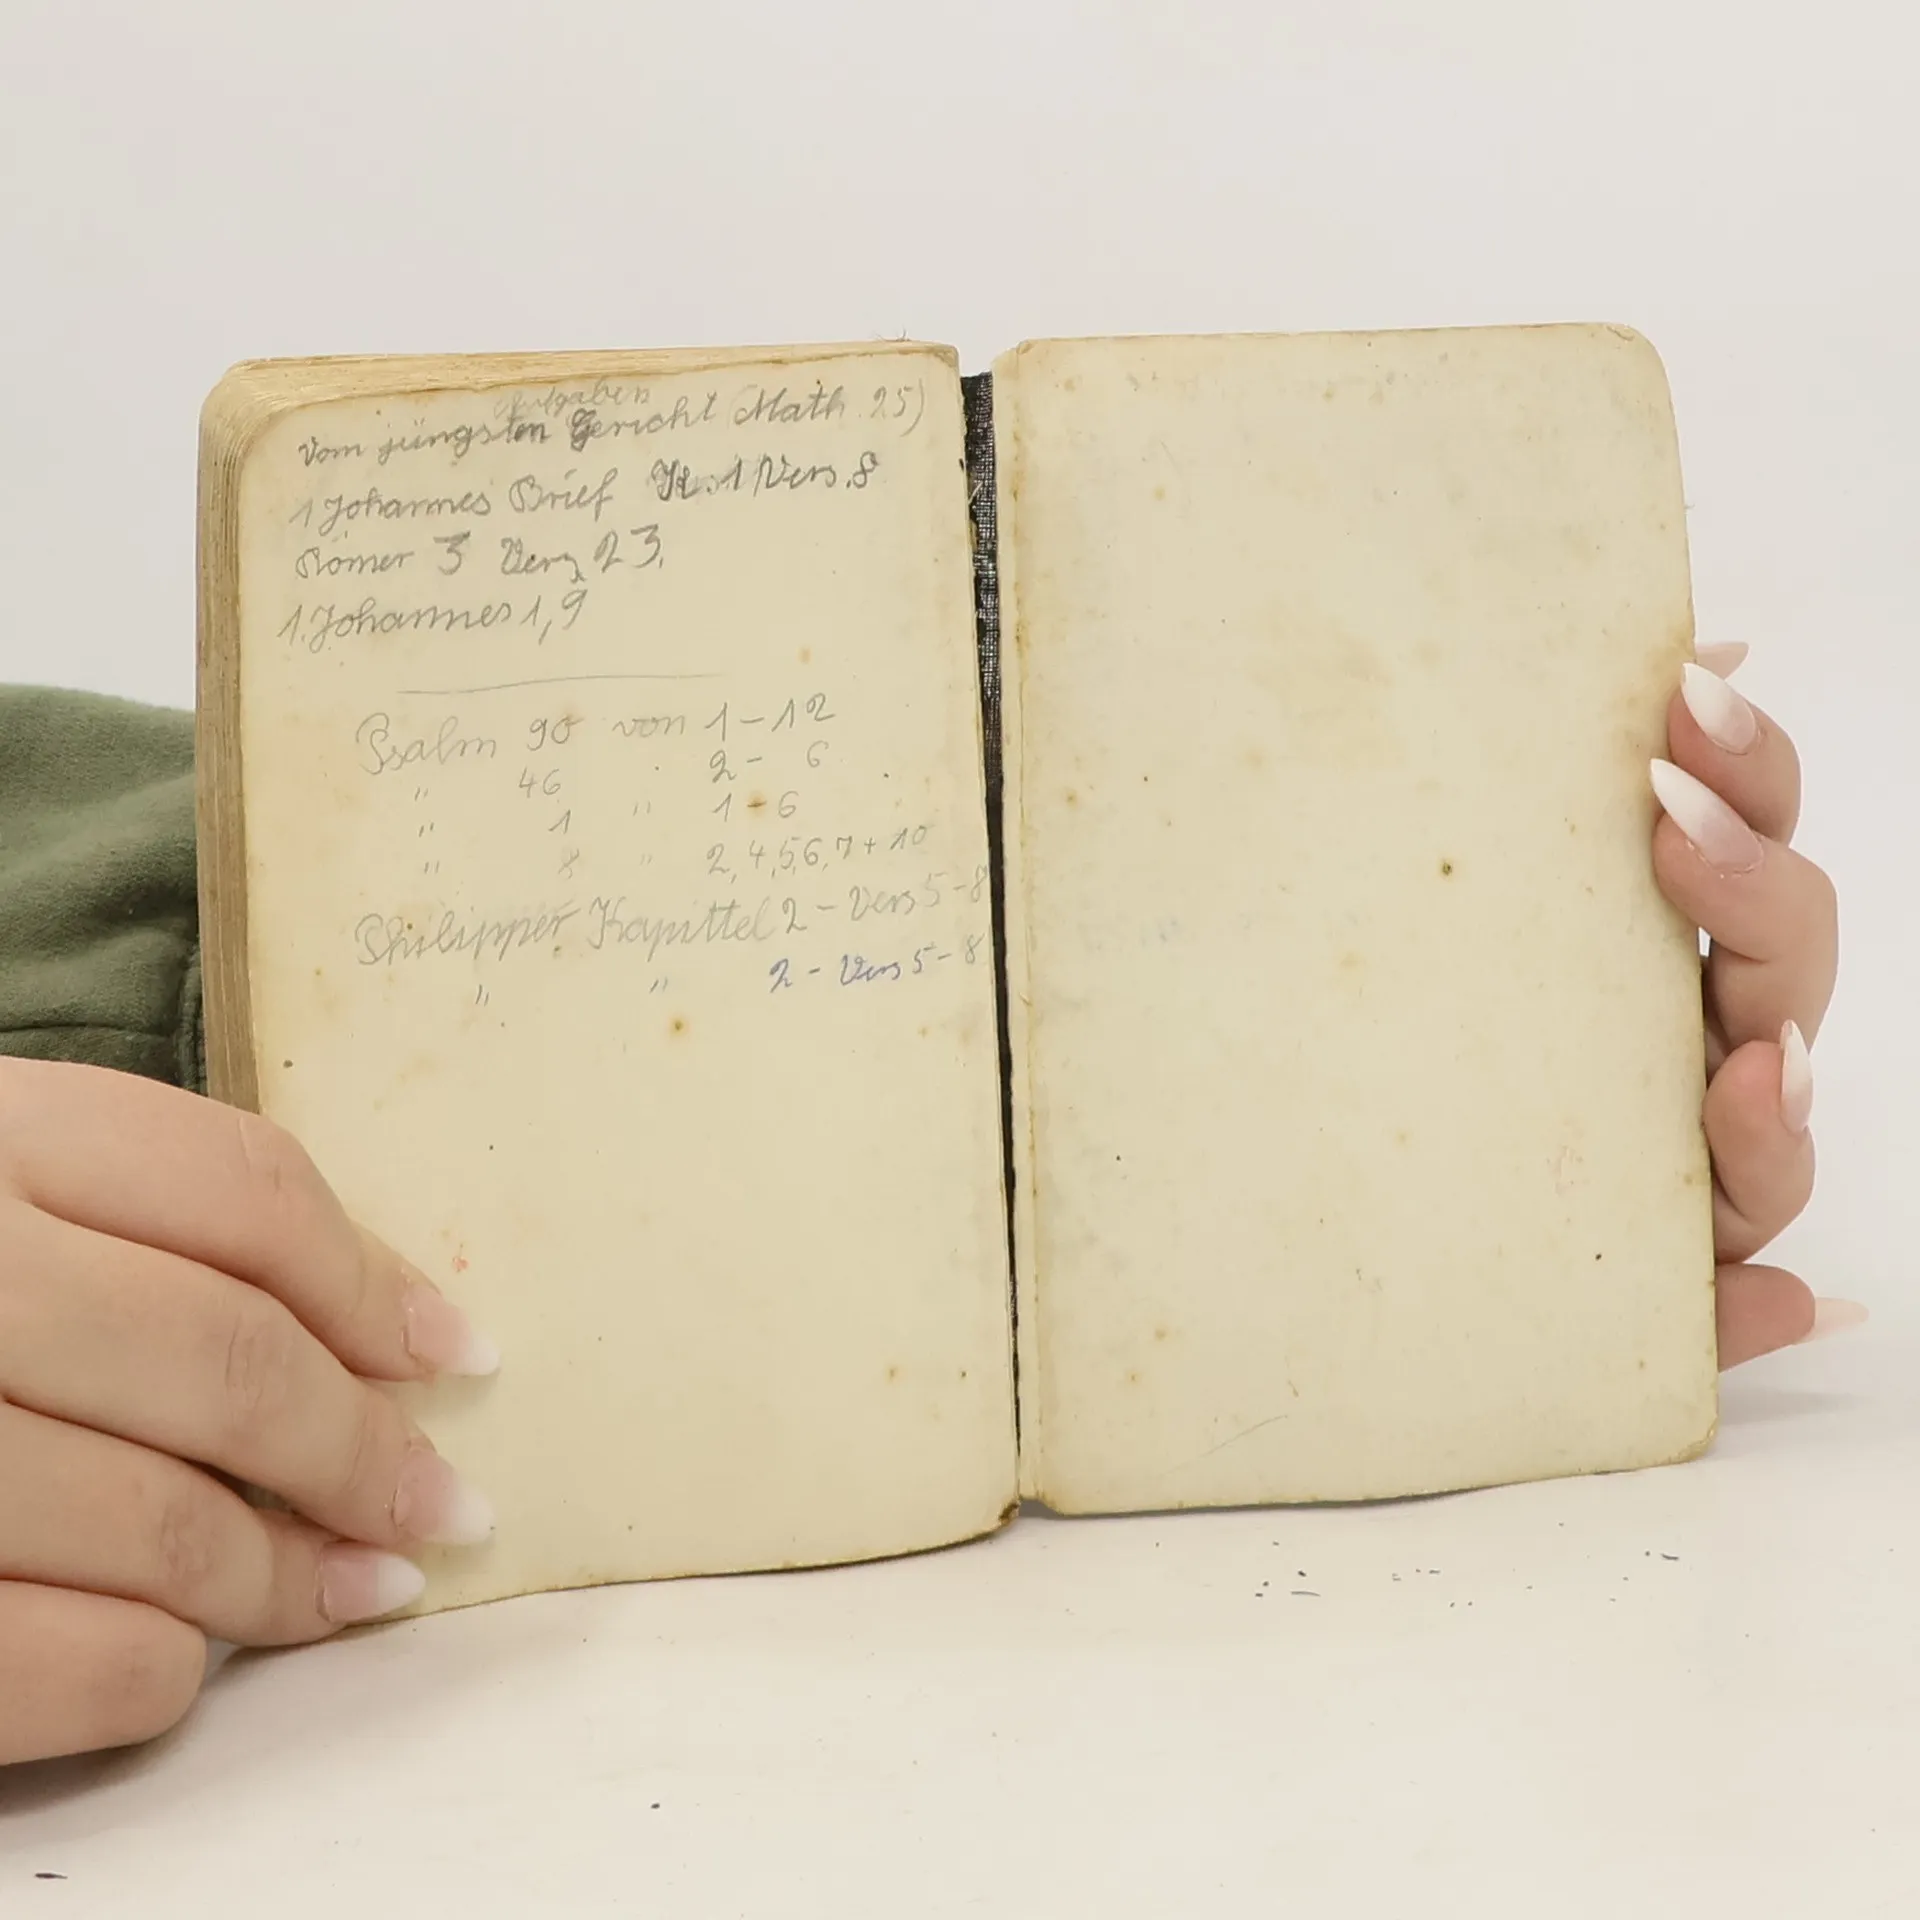 Aufgaben
Vom jüngsten Gericht Math. 25)
1 Johannes Brief K. 1 Vers. 8
Römer 3 Vers 23.
1. Johannes 1,9
Psalm 90 von 1-12
" 46 " 2- 6
" 1 " 1-6
" 8 " 2,4,5,6,7+10
Philipper Kapittel 2- Vers 5-8
" " 2- Vers 5-8